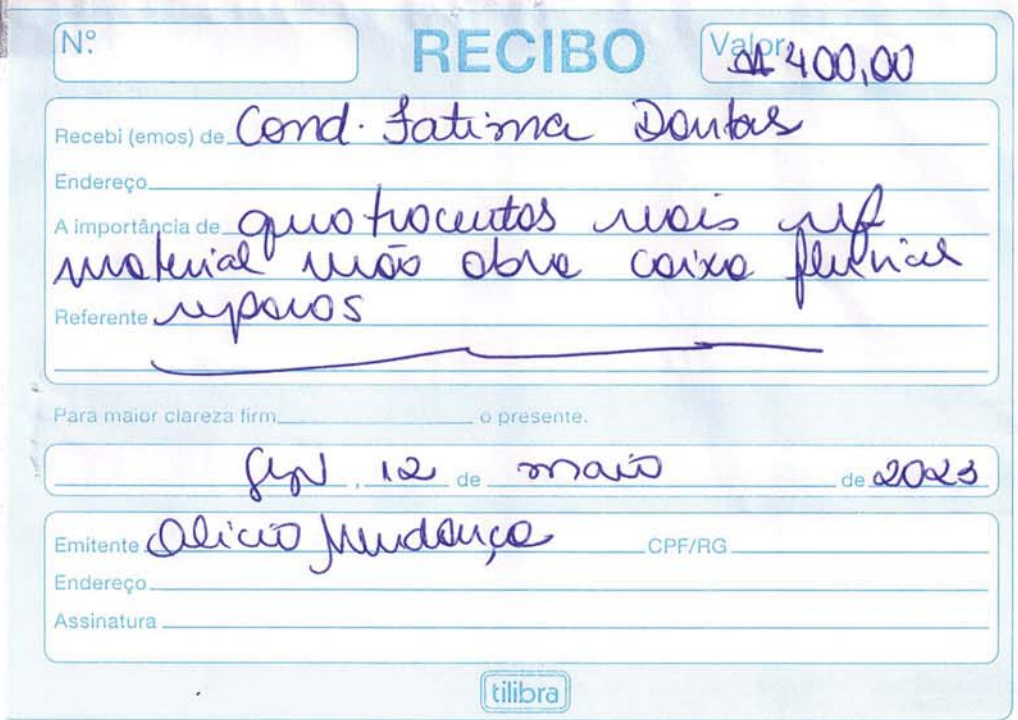 N.º RECIBO Valor R$ 400,00
Recebi (emos) de Cond. Fatima Dantas
Endereço
A importância de quatrocentos reais ref
material mão obra caixa pluvial
Referente reparos
Para maior clareza firm o presente.
12 de maio de 2023
Emitente Alicio Mendonça CPF/RG
Endereço
Assinatura
tilibra